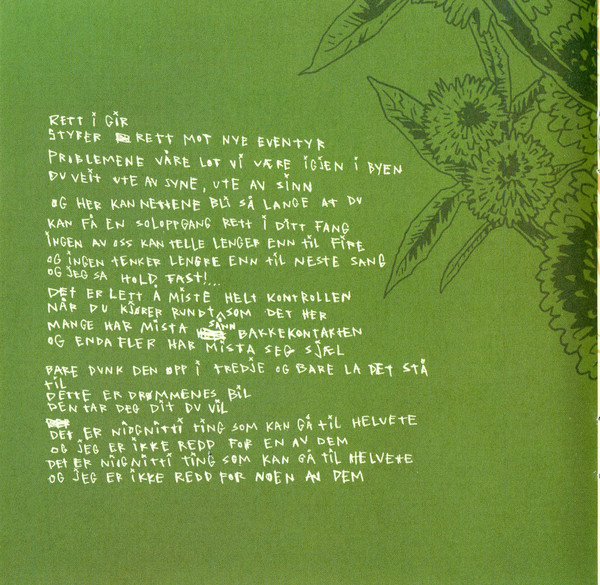 RETT I GIR
STYRER RETT MOT NYE EVENTYR
PROBLEMENE VÅRE LOT VI VÆRE IGJEN I BYEN
DU VEIT UTE AV SYNE, UTE AV SINN
OG HER KAN NETTENE BLI SÅ LANGE AT DU
KAN FÅ EN SOLOPPGANG RETT I DITT FANG
INGEN AV OSS KAN TELLE LENGER ENN TIL FIRE
OG INGEN TENKER LENGRE ENN TIL NESTE SANG
OG JEG SA HOLD FAST!...
DET ER LETT Å MISTE HELT KONTROLLEN
NÅR DU KJØRER RUNDT SÅNN SOM DET HER
MANGE HAR MISTA BAKKEKONTAKTEN
OG ENDA FLER HAR MISTA SEG SJÆL
BARE DUNK DEN OPP I TREDJE OG BARE LA DET STÅ
TIL
DETTE ER DRØMMENES BIL
DEN TAR DEG DIT DU VIL
DET ER NIOGNITTI TING SOM KAN GÅ TIL HELVETE
OG JEG ER IKKE REDD FOR EN AV DEM
DET ER NIOGNITTI TING SOM KAN GÅ TIL HELVETE
OG JEG ER IKKE REDD FOR NOEN AV DEM